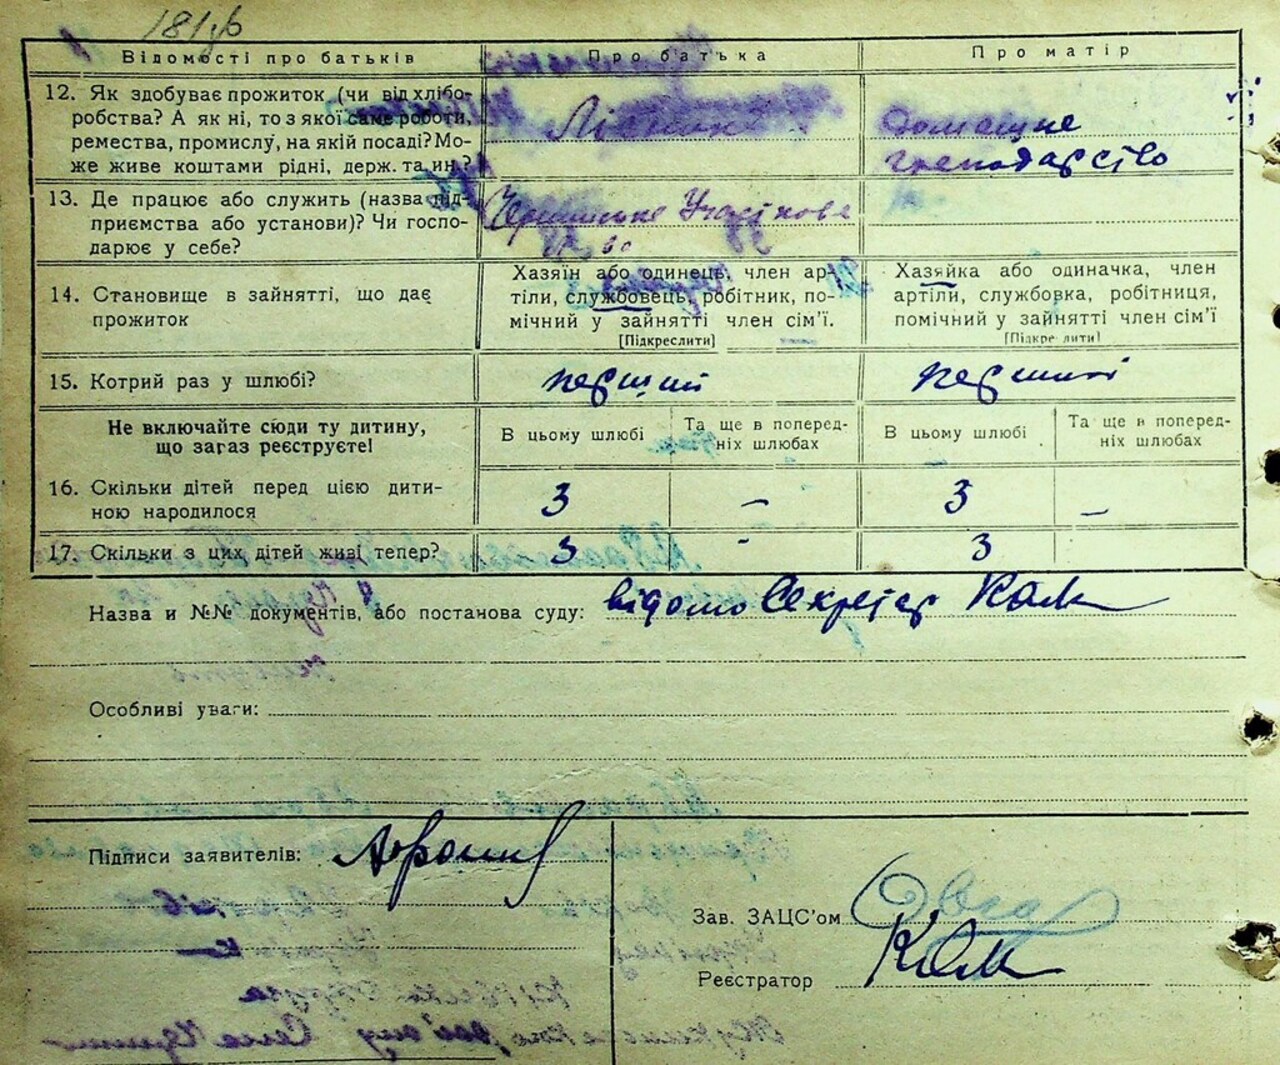 Відомості про батьків
Про батька
Про матір
12. Як здобуває прожиток (чи від хлібо-
робства? А як ні, то з якої саме роботи,
ремества, промислу, на якій посаді? Мо-
же живе коштами рідні, держ. та ин.?
домашнє
господарство
13. Де працює або служить (назва під-
приємства або установи)? Чи госпо-
дарює у себе?
14. Становище в зайнятті, що дає
прожиток
Хазяїн або одинець, член ар-
тіли, службовець, робітник, по-
мічний у зайнятті член сім'ї.
[Підкреслити]
Хазяйка або одиначка, член
артіли, службовка, робітниця,
помічний у зайнятті член сім'ї
[Підкреслити]
15. Котрий раз у шлюбі?
перший
перший
Не включайте сюди ту дитину,
що загаз реєструєте!
В цьому шлюбі
Та ще в поперед-
ніх шлюбах
В цьому шлюбі
Та ще в поперед-
ніх шлюбах
16. Скільки дітей перед цією дити-
ною народилося
3 – 3 –
17. Скільки з цих дітей живі тепер?
3 - 3
Назва и №№ документів, або постанова суду: відомо Секретар
Особливі уваги:
Підписи заявителів:
Зав. ЗАЦС'ом
Реєстратор